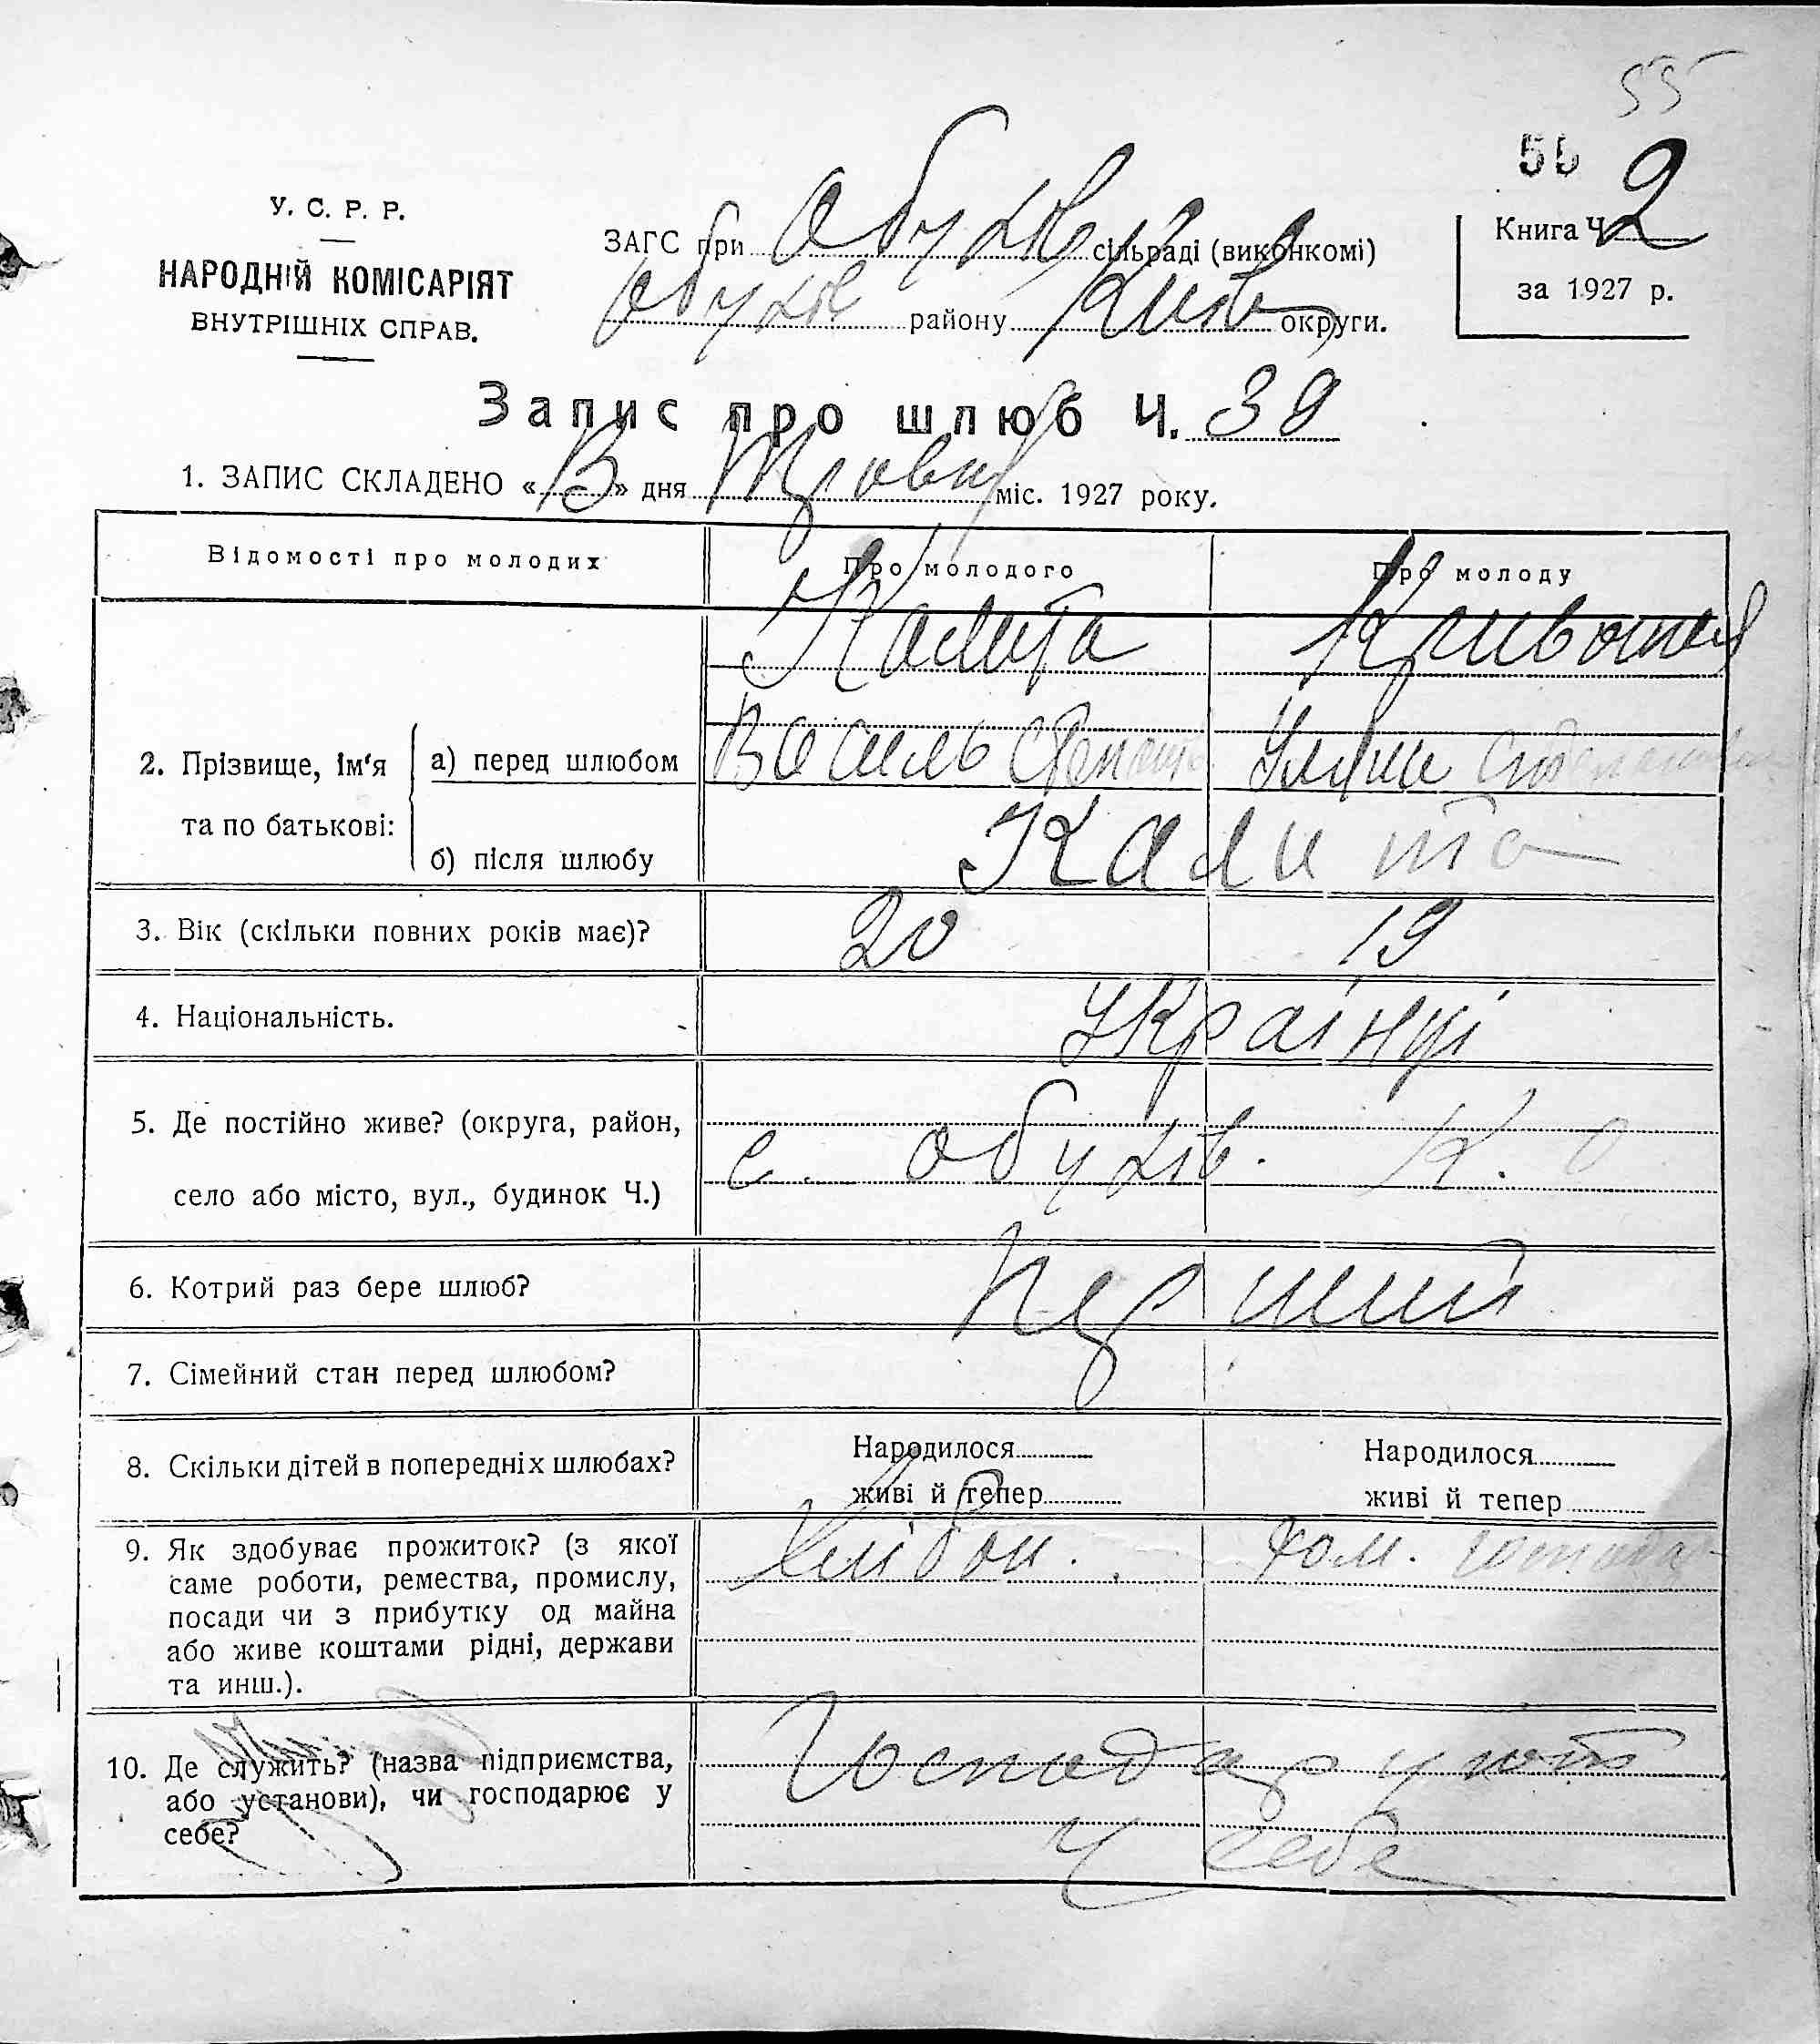 55
55
У. С. Р. Р.
НАРОДНІЙ КОМІСАРІЯТ
ВНУТРІШНІХ СПРАВ.
ЗАГС при Обухів сільраді (виконкомі)
Обухів району Київ округи.
Книга Ч. 2
за 1927 р.
Запис про шлюб Ч. 39
1. ЗАПИС СКЛАДЕНО « » дня міс. 1927 року.
Відомості про молодих
Про молодого
Про молоду
2. Прізвище, ім'я та по батькові:
а) перед шлюбом
Калита
Василь
Уляна
б) після шлюбу
Калита
3. Вік (скільки повних років має)?
20
19
4. Національність.
Українці
5. Де постійно живе? (округа, район,
село або місто, вул., будинок Ч.)
с. Обухів. К. О
6. Котрий раз бере шлюб?
Перший
7. Сімейний стан перед шлюбом?
8. Скільки дітей в попередніх шлюбах?
Народилося
живі й тепер
Народилося
живі й тепер
9. Як здобуває прожиток? (з якої
саме роботи, ремества, промислу,
посади чи з прибутку од майна
або живе коштами рідні, держави
та инш.).
Хлібор.
Дом. господар
10. Де служить? (назва підприємства,
або установи), чи господарює у
себе?
Господарують
у себе